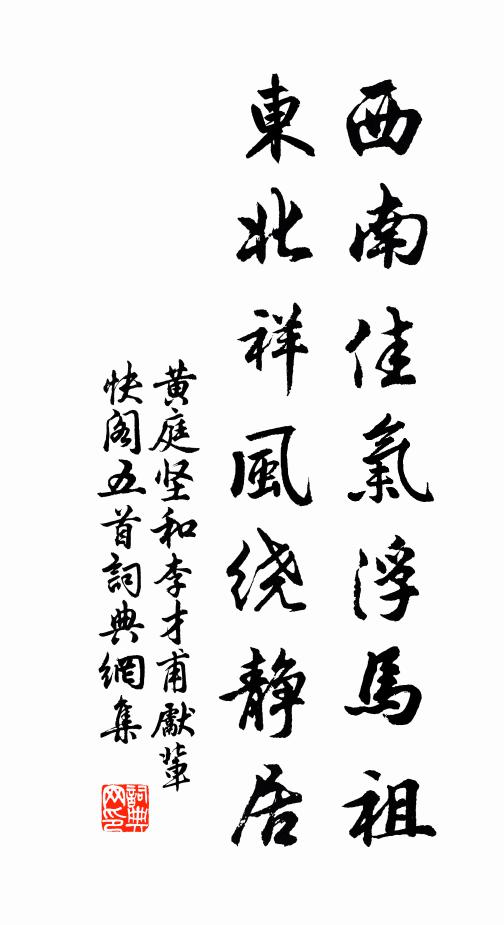 西南佳氣浮馬祖
東北祥風绕静居
黄庭坚和李才甫獻輩
快阁五首詞典網集
詞典网印